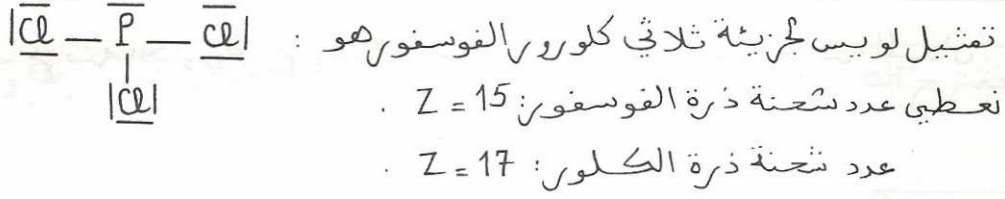 تمثيل لويس لجزيئة ثلاثي كلورور الفوسفور هو :
|Cl — P — Cl|
|Cl|
نعطي عدد شحنة ذرة الفوسفور: Z = 15 .
عدد شحنة ذرة الكلور: Z = 17 .